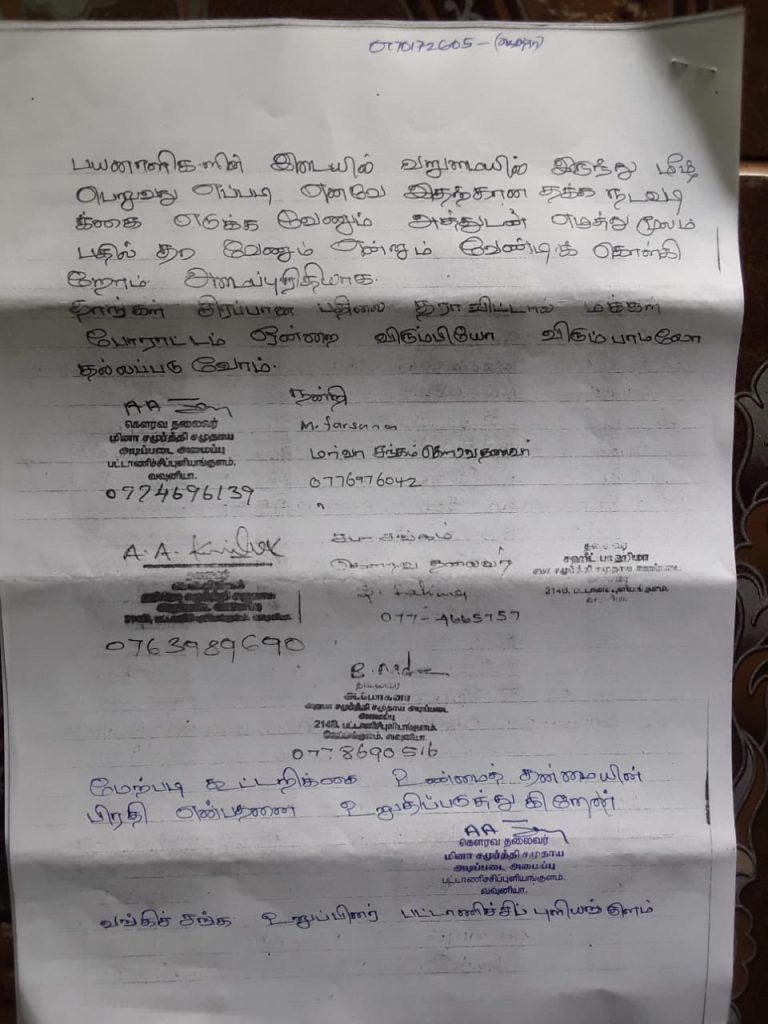 0770172605 -
பயனாளிகளின் இடையில் வறுமையில் இருந்து மீழ்
பெறுவது எப்படி எனவே இதற்கான தக்க நடவடி
க்கை எடுக்க வேணும் அத்துடன் எழுத்து மூலம்
பதில் தற வேணும் என்றும் வேண்டிக் கொள்கி
றோம். அடைப்புரிதியாக
தாங்கள் சிரப்பான பதிலை தரா விட்டால் மக்கள்
போராட்டம் ஒன்றை விரும்பியோ விரும்பாமலோ
தல்லப்படுவோம்.
நன்றி
கௌரவ தலைவர்
மினா சமுர்த்தி சமுதாய
அடிப்படை அமைப்பு
பட்டாணிச்சிப்புளியங்குளம்.
வவுனியா.
0774696139
M. Farsana
மர்வா சங்கம் கௌரவ தலைவர்
0776976042
A. A.
0763989690
சபா சங்கம்
கௌரவ தலைவர்
077-4665757
தலைவர்
சமுர்த்தி சமுதாய
214B, பட்டாணிச்சிப்புளியங்குளம்,
தலைவர்
சமுர்த்தி சமுதாய அடிப்படை
அமைப்பு
214B, பட்டாணிச்சிப்புளியங்குளம்,
வவுனியா.
0778690516
மேற்படி கூட்டறிக்கை உண்மைத் தன்மையின்
பிரதி என்பதனை உறுதிப்படுத்து கிறேன்
கௌரவ தலைவர்
மினா சமுர்த்தி சமுதாய
அடிப்படை அமைப்பு
பட்டாணிச்சிப்புளியங்குளம்.
வவுனியா.
வங்கிச் சங்க உறுப்பினர் பட்டாணிச்சிப் புளியங்குளம்